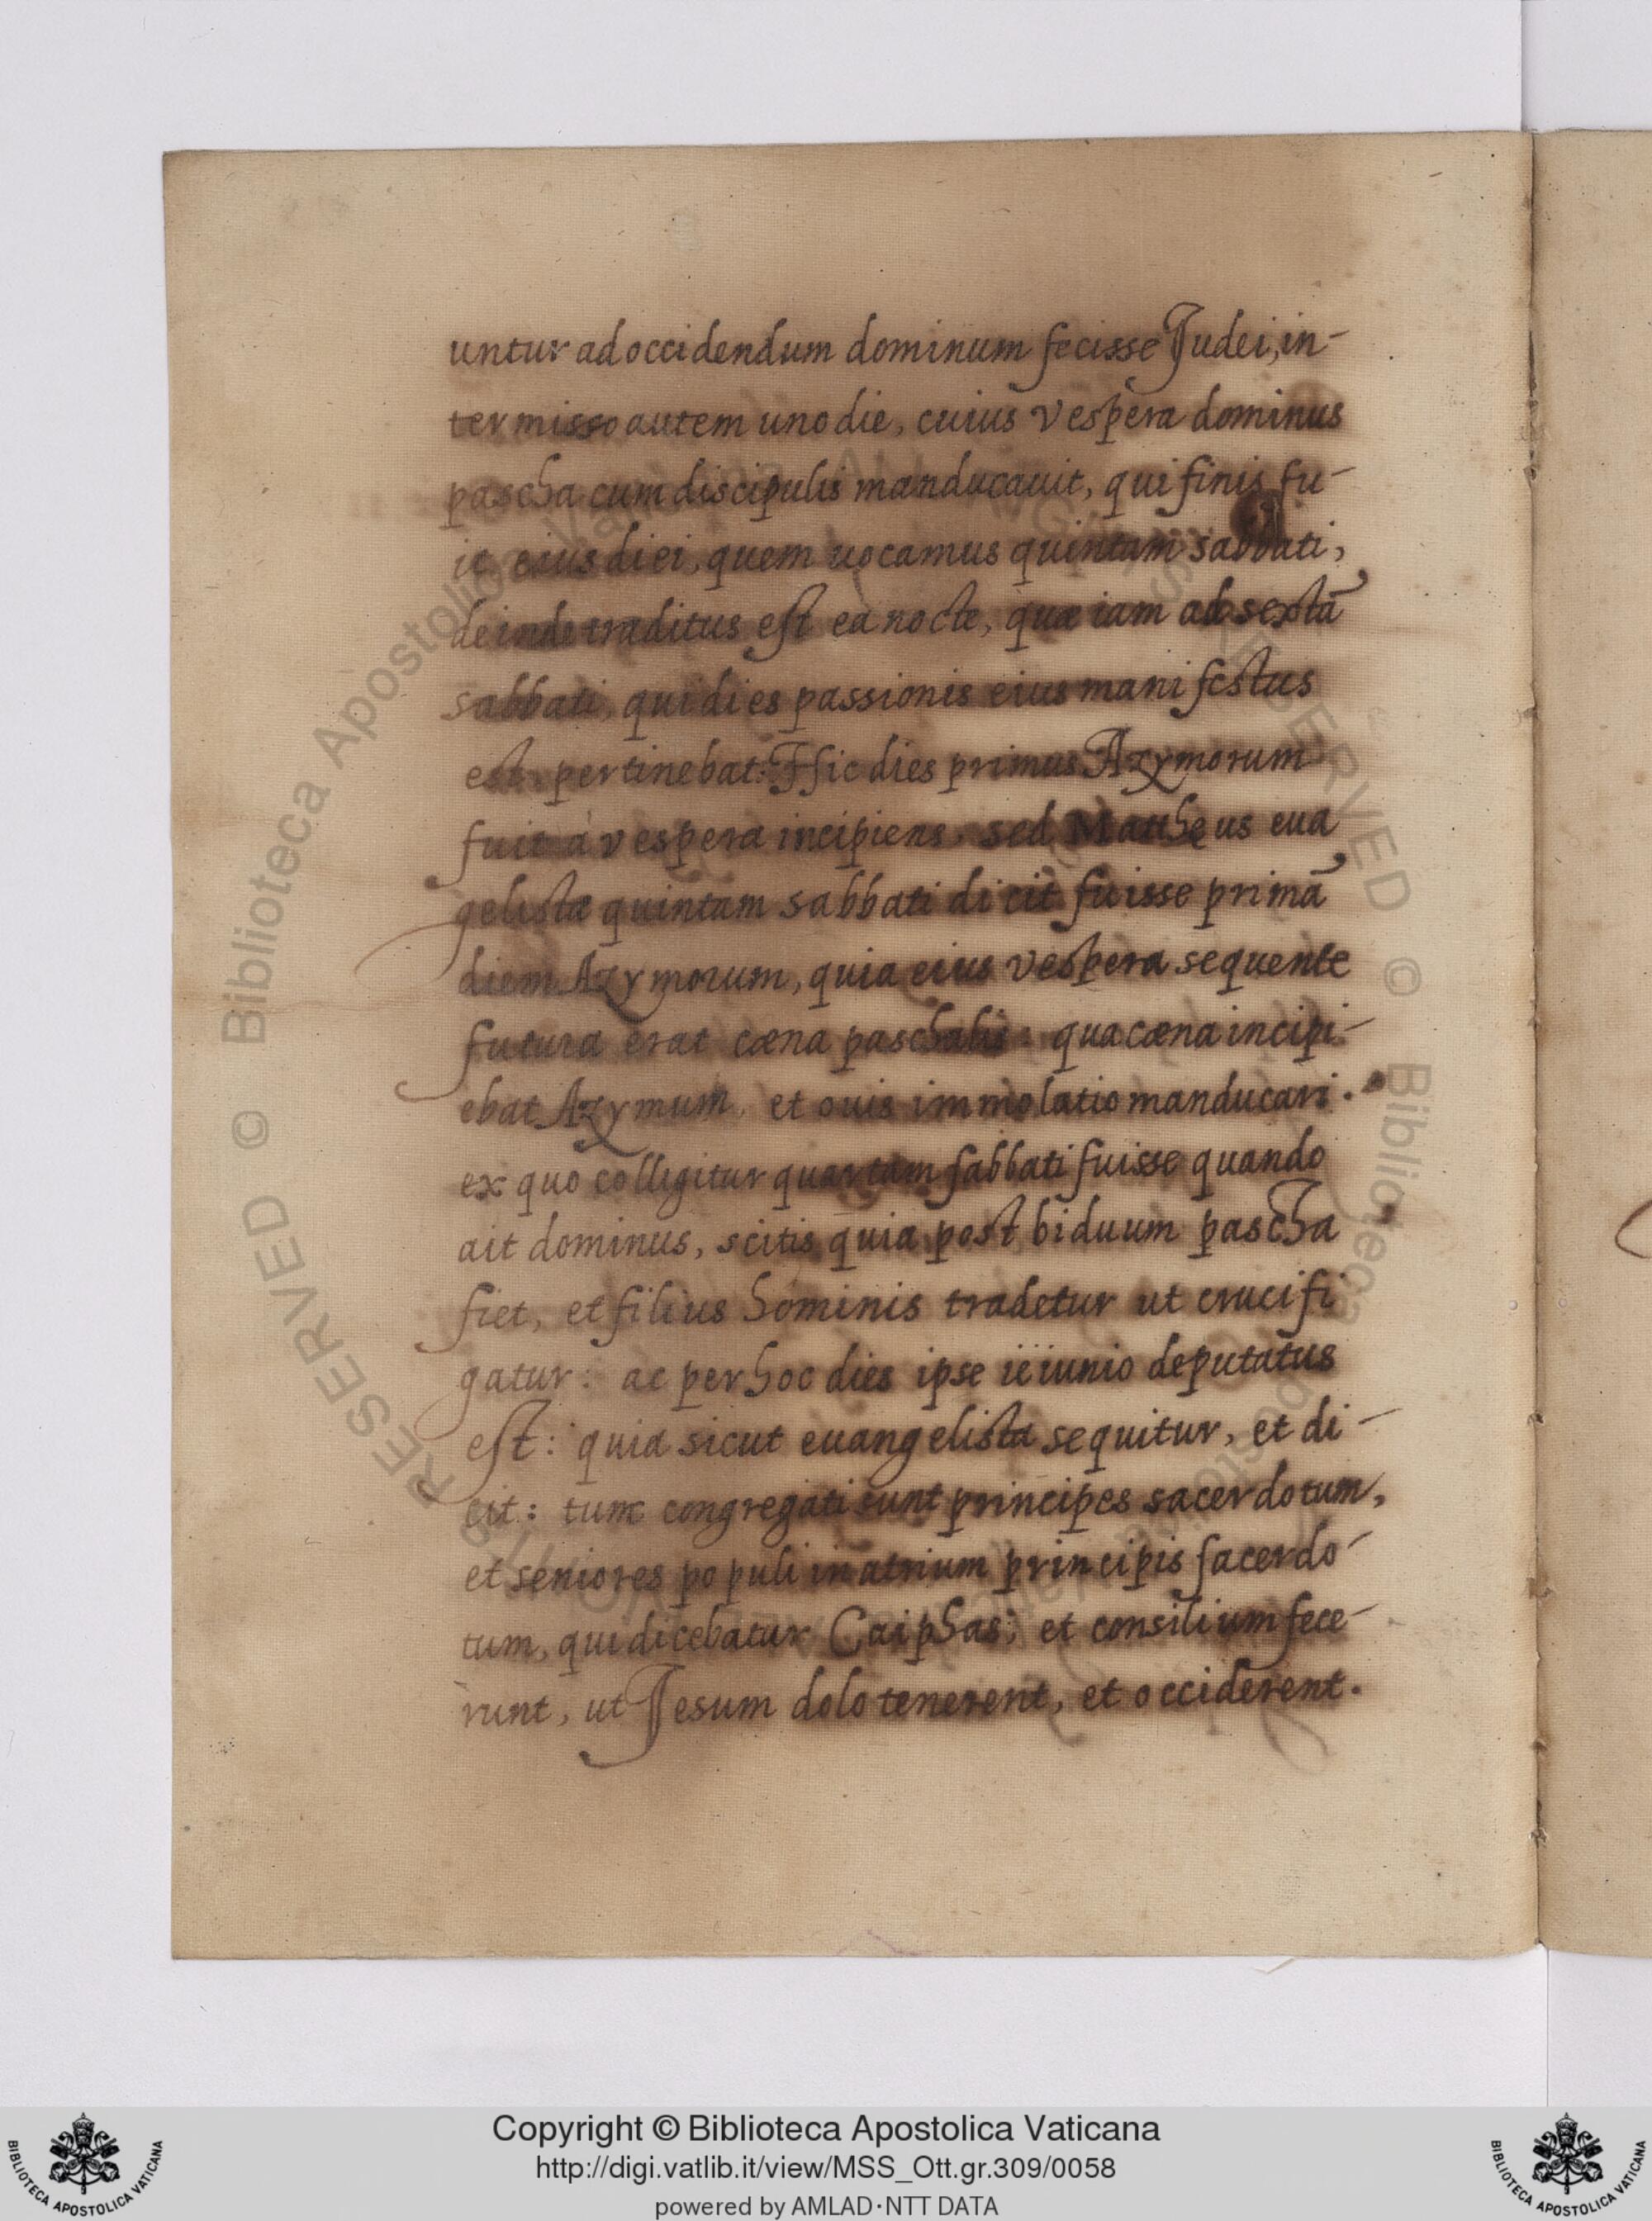 untur ad occidendum dominum fecisse Judei, in-
termisso autem uno die, cuius vespera dominus
pascha cum discipulis manducauit, qui finis fu-
it eius diei, quem uocamus quintam sabbati,
deinde traditus est ea nocte, quæ iam ad sextā
sabbati, qui dies passionis eius manifestus
est pertinebat. Hic dies primus Azymorum
fuit a vespera incipiens. sed Mattheus eua
gelista quintam sabbati dicit fuisse primā
diem Azymorum, quia eius vespera sequente
futura erat cœna paschalis: qua cœna incipi-
ebat Azymum, et ouis immolatio manducari.
ex quo colligitur quartam sabbati fuisse quando
ait dominus, scitis quia post biduum pascha
fiet, et filius hominis tradetur ut crucifi
gatur: ac per hoc dies ipse ieiunio deputatus
est: quia sicut euangelista sequitur, et di-
cit: tunc congregati sunt principes sacerdotum,
et seniores populi in atrium principis sacerdo-
tum, qui dicebatur Caiphas; et consilium fece-
runt, ut Jesum dolo tenerent, et occiderent.
RESERVED © Biblioteca Apostolica Vaticana
Copyright © Biblioteca Apostolica Vaticana
http://digi.vatlib.it/view/MSS_Ott.gr.309/0058
powered by AMLAD·NTT DATA
BIBLIOTECA APOSTOLICA VATICANA
BIBLIOTECA APOSTOLICA VATICANA